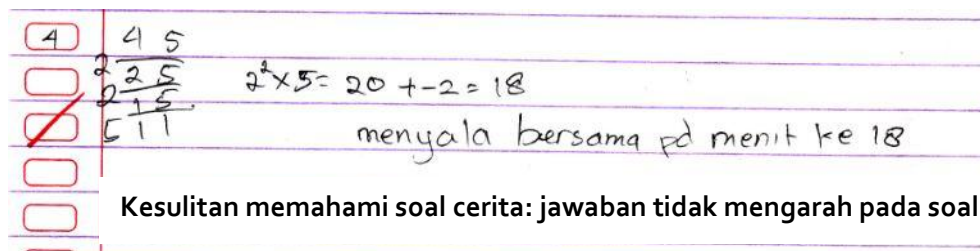 4 4 5
2 2 5 2²×5= 20 +-2 = 18
2 1 5
5 1 1 menyala bersama pd menit ke 18
Kesulitan memahami soal cerita: jawaban tidak mengarah pada soal